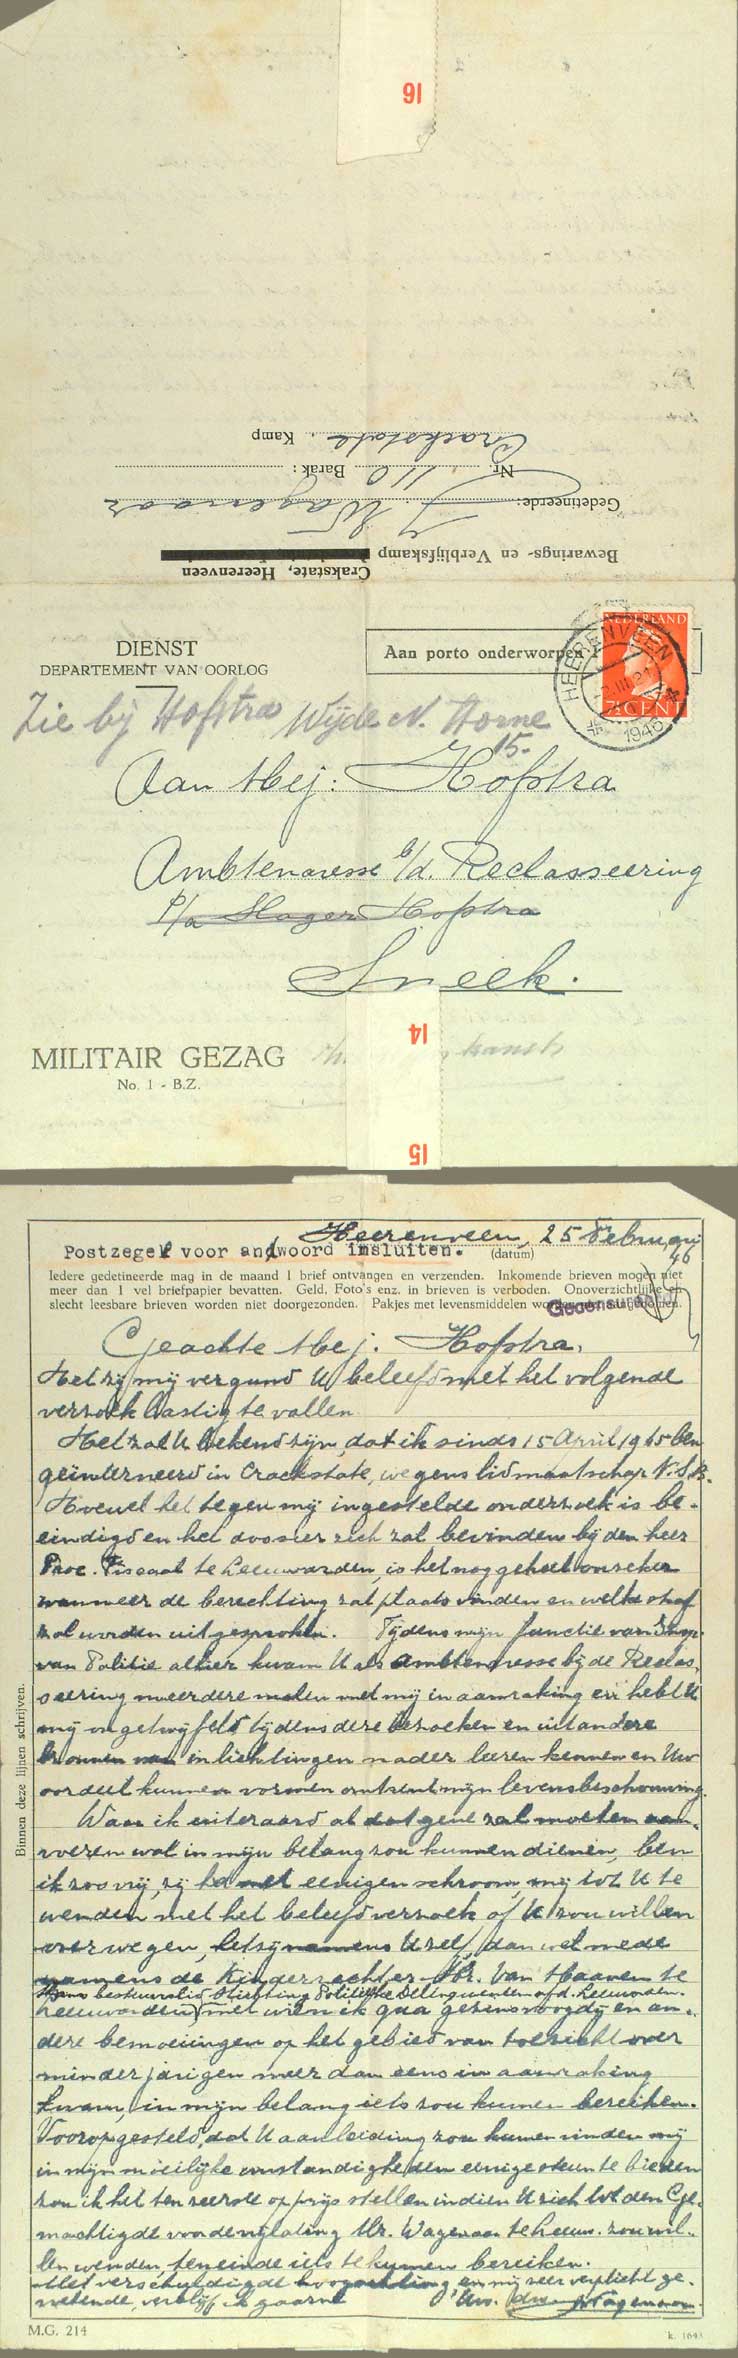 16
Crackstate. Kamp
Nr. 110 Barak:
Gedetineerde: J. Wagenaar
Bewarings- en Verblijfskamp
Crakstate, Heerenveen
DIENST
DEPARTEMENT VAN OORLOG
Aan porto onderworpen
NEDERLAND
7½ CENT
HEERENVEEN
1946
Zie bij Hofstra Wijde N. Horne
15.
Aan Mej: Hofstra
Ambtenaresse b/d. Reclasseering
p/a Slager Hofstra
Sneek.
14
MILITAIR GEZAG
No. 1 - B.Z.
15
Heerenveen, 25 Februarij
46
Postzegel voor andwoord insluiten. (datum)
Iedere gedetineerde mag in de maand 1 brief ontvangen en verzenden. Inkomende brieven mogen niet
meer dan 1 vel briefpapier bevatten. Geld, Foto's enz. in brieven is verboden. Onoverzichtlijke en
slecht leesbare brieven worden niet doorgezonden. Pakjes met levensmiddelen worden
Gecensureerd
Geachte Mej. Hofstra,
Het zij mij vergund U beleefd met het volgende
verzoek lastig te vallen
Het zal U bekend zijn, dat ik sinds 15 April 1945 ben
geïnterneerd in Crackstate, wegens lidmaatschap N.S.B.
Hoewel het tegen mij ingestelde onderzoek is be-
eindigd en het dossier zich zal bevinden bij den heer
Proc. Fiscaal te Leeuwarden, is het nog geheel onzeker
wanneer de berechting zal plaats vinden en welke straf
zal worden uitgesproken. Tijdens mijn functie van Insp.
van Politie alhier kwam U als ambtenaresse bij de Reclas-
seering meerdere malen met mij in aanraking en hebt U
mij ongetwijfeld tijdens deze bezoeken en uit andere
bronnen van inlichtingen nader leeren kennen en Uw
oordeel kunnen vormen omtrent mijn levensbeschouwing.
Waar ik uiteraard al datgene zal moeten aan-
voeren wat in mijn belang zou kunnen dienen, ben
ik zoo vrij, zij het met eenigen schroom, mij tot U te
wenden met het beleefd verzoek of U zou willen
overwegen, hetzij namens Uzelf, dan wel mede
namens de Kinderrechter Mr. van Haaren te
thans bestuurslid Stichting Politieke Delinquenten afd. Leeuwarden.
Leeuwarden met wien ik qua gezinsvoogdij en an-
dere bemoeiingen op het gebied van toezicht over
minderjarigen meer dan eens in aanraking
kwam, in mijn belang iets zou kunnen bereiken.
Vooropgesteld, dat U aanleiding zou kunnen vinden mij
in mijn moeilijke omstandigheden eenige steun te bieden
zou ik het ten zeerste op prijs stellen indien U zich tot den Ge-
machtigde voor de vrijlating Mr. Wagenaar te Leeuw. zou wil-
len wenden, teneinde iets te kunnen bereiken.
Met verschuldigde hoogachting en mij zeer verplicht ge-
voelende, verblijf ik gaarne Uw. dw. J Wagenaar.
Binnen deze lijnen schrijven.
M.G. 214
k. 1643